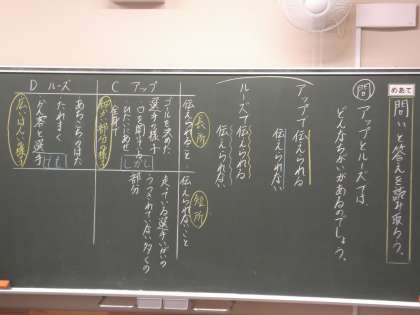 めあて
問いと答えを読み取ろう。
問
アップとルーズでは、
どんなちがいがあるのでしょう。
アップで伝えられる
伝えられない
ルーズで伝えられる
伝えられない
長所
短所
伝えられること
伝えられないこと
C アップ
ゴールを決めた
選手の様子
口を開けて
ひたいにあせ
細かい部分の様子
走っている選手いがいの
うつされていない多くの
部分
D ルーズ
あちこちのはた
たれまく
かん客と選手
広いはんいの様子